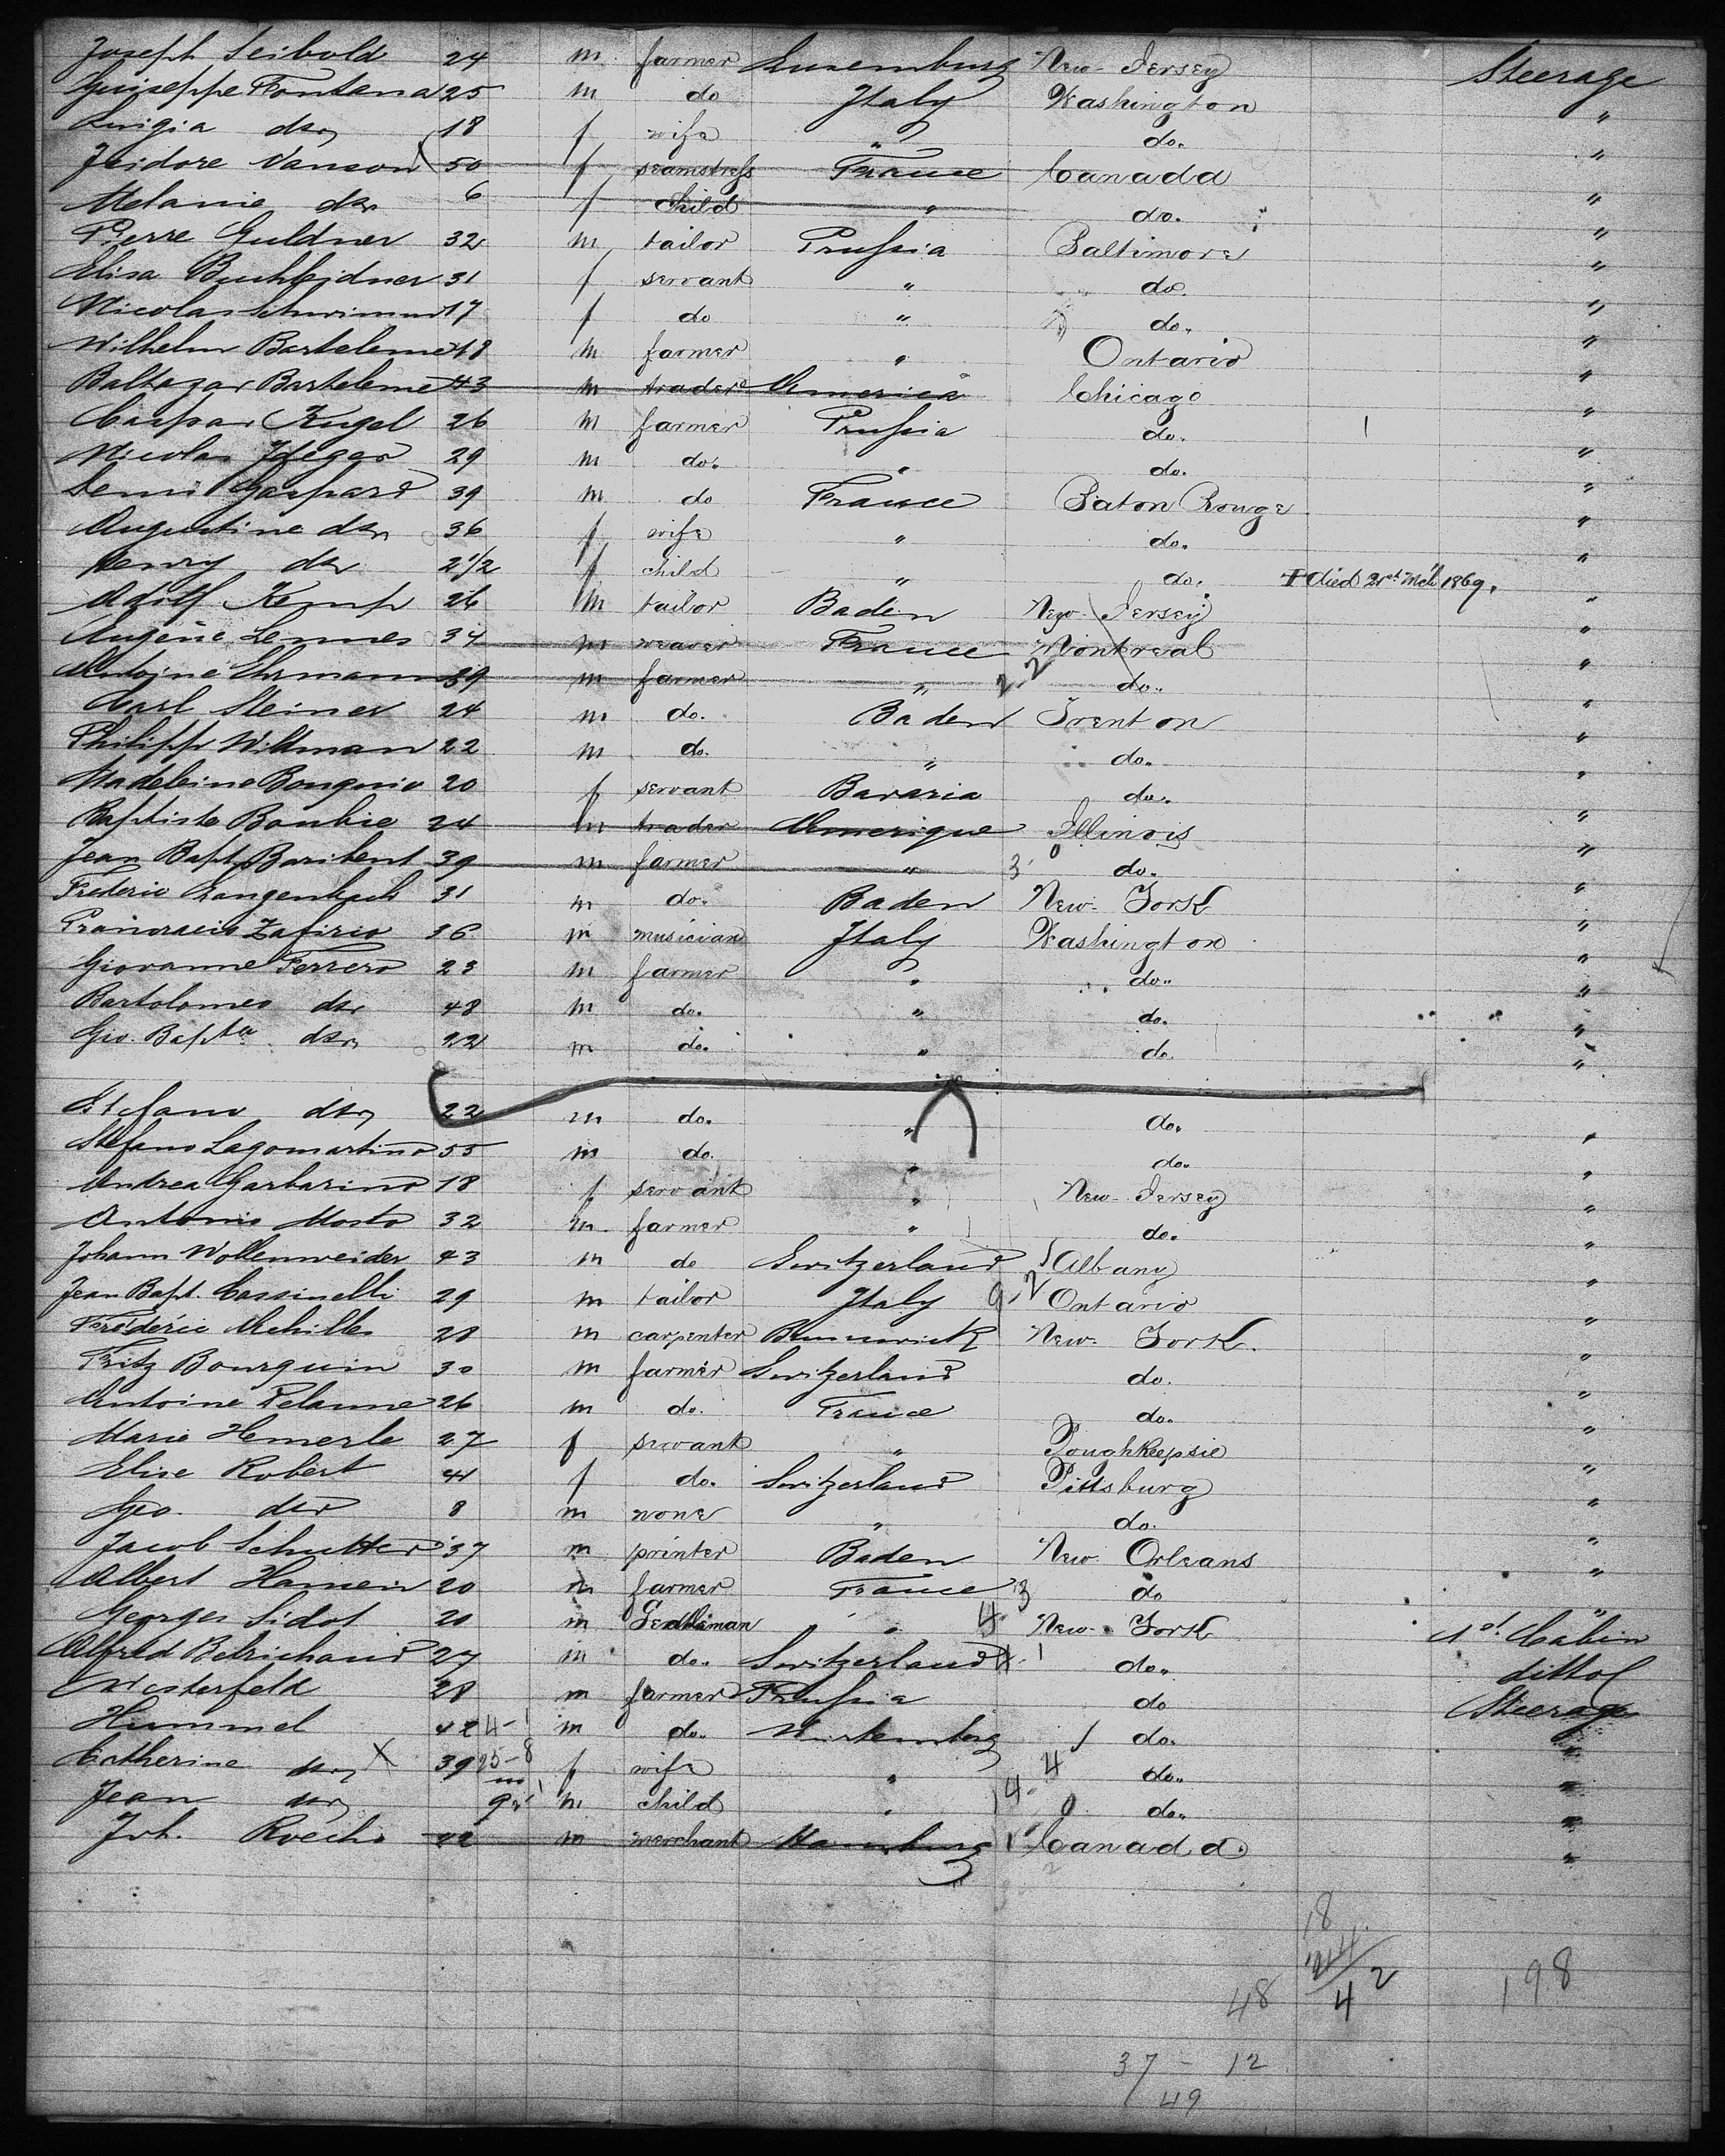 Joseph Seibold 24 m farmer Luxemburg New-Jersey Steerage
Guiseppe Fontana 25 m do Italy Washington "
Luigia do 18 f wife " do. "
Isidore Vanson 50 f seamstress France Canada "
Melanie do 6 f child " do. "
Pierre Guldner 32 m tailor Prussia Baltimore "
Elisa 31 f servant " do. "
Nicolas 17 f do " do. "
Wilhelm Barteleme 18 m farmer " Ontario "
Baltazar Barteleme 43 m trader America Chicago "
Caspar Kugel 26 m farmer Prussia do. "
Nicolas 29 m do. " do. "
Gaspard 39 m do France Baton Rouge "
Augustine do 36 f wife " do. "
Henry do 2 1/2 f child " do. † died 21st Mch 1869. "
Adolf Kemp 26 m tailor Baden New-Jersey "
Eugène Lennes 34 m weaver France Montreal "
Antoine Ehrmann 39 m farmer " do. "
Carl Steiner 24 m do. Baden Trenton "
Philipp Wittman 22 m do. " do. "
Madeleine 20 f servant Bavaria do. "
Baptiste 24 m trader Amerique Illinois "
Jean Bapt. 39 m farmer " do. "
Fréderic Langenbach 31 m do. Baden New-York "
Zafirio 36 m musician Italy Washington "
Giovanne Ferrero 23 m farmer " do. "
Bartolomeo do 48 m do. " do. "
Gio. Bapta do 22 m do. " do. "
Stefano do 22 m do. " do. "
Stefano Lagomartino 55 m do. " do. "
Andrea Garbarino 18 f servant " New-Jersey "
Antonio Mosto 32 m farmer " do. "
Johann Wollenweider 43 m do Switzerland Albany "
Jean Bapt. Cassinelli 29 m tailor Italy Ontario "
Fréderic 28 m carpenter Brunswick New-York. "
Fritz Bourquin 30 m farmer Switzerland do. "
Antoine Pelanne 26 m do. France do. "
Marie Hemerle 27 f servant " Poughkeepsie "
Elise Robert 41 f do. Switzerland Pittsburg "
Geo. do 8 m none " do. "
Jacob Schutter 37 m printer Baden New Orleans "
Albert 20 m farmer France do "
Georges Sidot 20 m Gentleman " New-York Cabin
Alfred 27 m do. Switzerland do. ditto
Westerfeld 28 m farmer Prussia do Steerage
Hummel 42 m do. Wurtemberg do. "
Catherine do X 39 f wife " do. "
Jean do 9 m child " do. "
Joh. 22 m merchant Hamburg Canada "
18
48 42 198
37 - 12
49